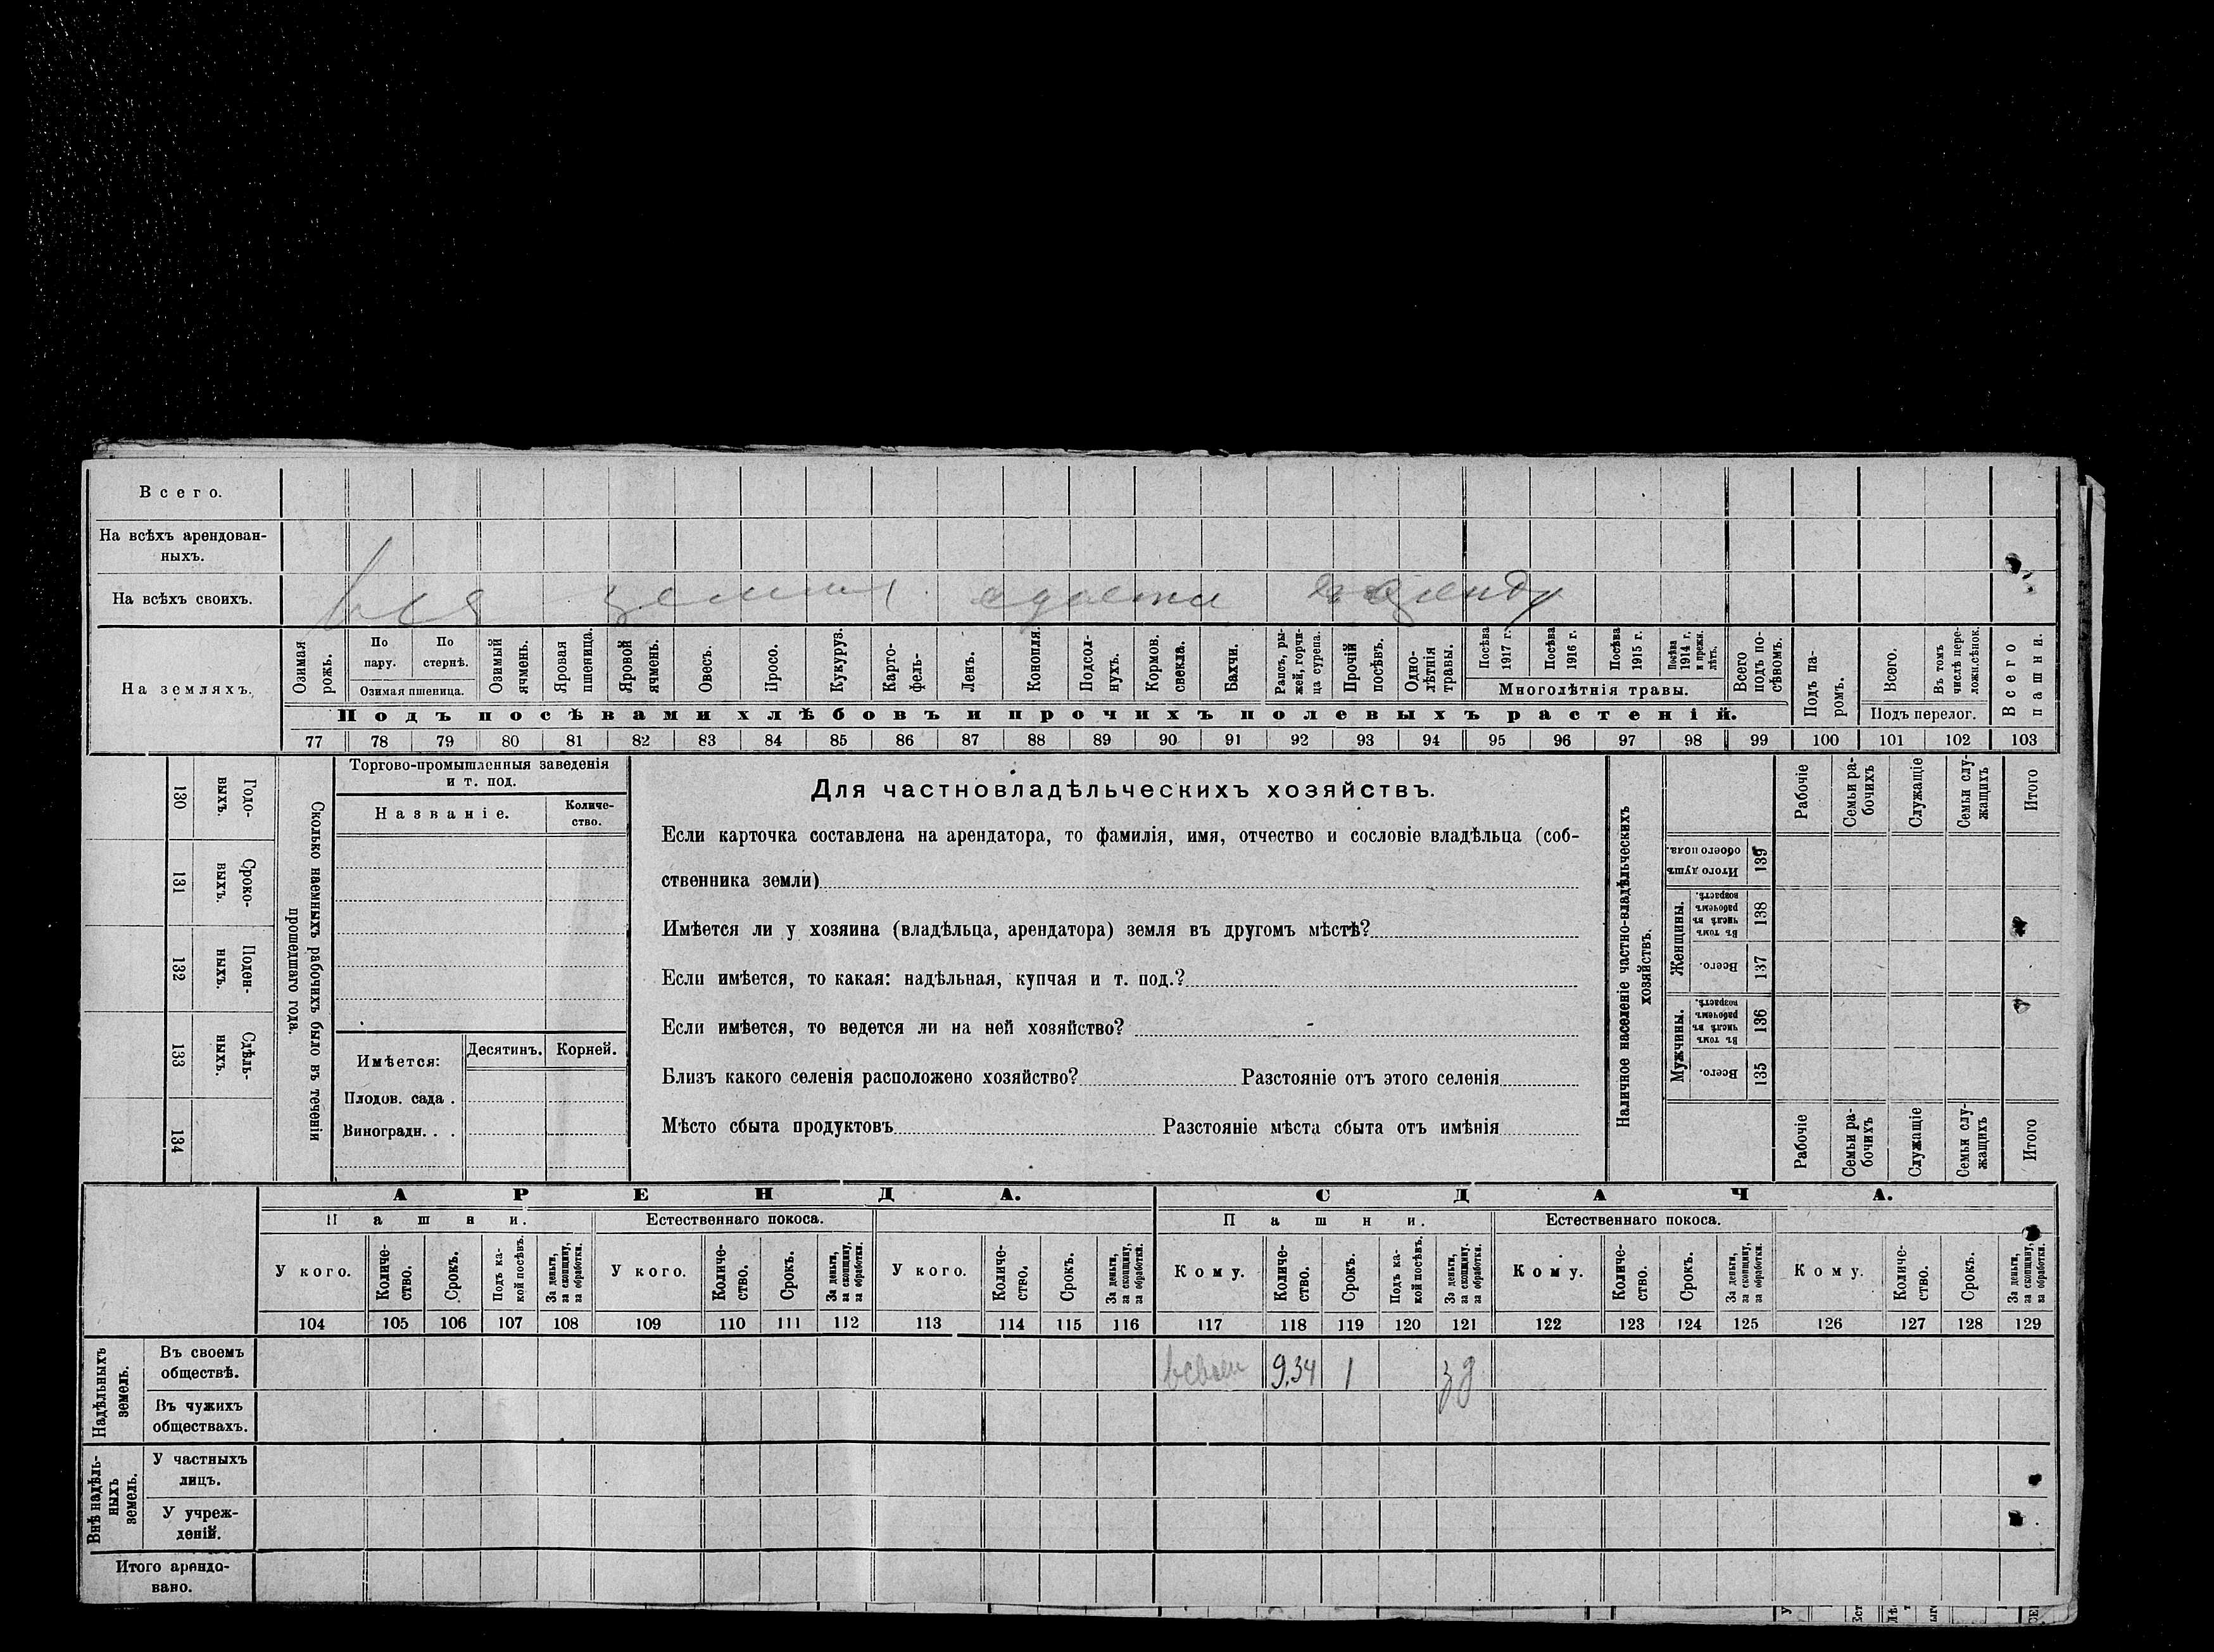 Всего.
На всѣхъ арендован-
ныхъ.
На всѣхъ своихъ.
Вся земля сдается въ аренду
На земляхъ.
Озимая рожь.
По пару.
По стернѣ.
Озимая пшеница.
Озимый ячмень.
Яровая пшеница.
Яровой ячмень.
Овесъ.
Просо.
Кукуруз.
Карто-
фель-
Ленъ.
Конопля.
Подсол-
нухъ.
Кормов. свекла.
Бахчи.
Рапсъ, ры-
жей, горчи-
ца сурепа.
Прочій посѣвъ.
Одно-
лѣтнія травы.
Посѣва 1917 г.
Посѣва 1916 г.
Посѣва 1915 г.
Посѣва 1914 г. и прежн. лѣтъ.
Многолѣтнія травы.
Всего подъ по-
сѣвомъ.
Подъ посѣвами хлѣбовъ и прочихъ полевыхъ растеній.
Подъ па-
ромъ.
Всего.
Въ томъ числѣ пере-
лож.сѣнок.
Подъ перелог.
Всего пашни.
77 78 79 80 81 82 83 84 85 86 87 88 89 90 91 92 93 94 95 96 97 98 99 100 101 102 103
Годо-
выхъ.
130
Сроко-
ныхъ.
131
Поден-
ныхъ.
132
Сдѣль-
ныхъ.
133
134
Сколько наемныхъ рабочихъ было въ теченіи
прошедшаго года.
Торгово-промышленныя заведенія
и т. под.
Названіе.
Количе-
ство.
Имѣется:
Десятинъ.
Корней.
Плодов. сада .
Виноградн. . .
Для частновладѣльческихъ хозяйствъ.
Если карточка составлена на арендатора, то фамилія, имя, отчество и сословіе владѣльца (соб-
ственника земли)
Имѣется ли у хозяина (владѣльца, арендатора) земля въ другомъ мѣстѣ?
Если имѣется, то какая: надѣльная, купчая и т. под.?
Если имѣется, то ведется ли на ней хозяйство?
Близъ какого селенія расположено хозяйство? Разстояніе отъ этого селенія
Мѣсто сбыта продуктовъ Разстояніе мѣста сбыта отъ имѣнія
Наличное населеніе частно-владѣльческихъ
хозяйствъ.
Рабочіе
Семьи ра-
бочихъ
Служащіе
Семьи слу-
жащихъ
Итого
Итого душъ обоего пола.
139
Женщины.
Въ томъ числѣ въ рабочемъ возрастѣ.
138
Всего.
137
Мужчины.
Въ томъ числѣ въ рабочемъ возрастѣ.
136
Всего.
135
Рабочіе
Семьи ра-
бочихъ
Служащіе
Семьи слу-
жащихъ
Итого
АРЕНДА.
СДАЧА.
Пашни.
Естественнаго покоса.
Пашни.
Естественнаго покоса.
У кого.
Количе-
ство.
Срокъ.
Подъ ка-
кой посѣвъ.
За деньги, за скопщину, за обработки.
У кого.
Количе-
ство.
Срокъ.
За деньги, за скопщину, за обработки.
У кого.
Количе-
ство.
Срокъ.
За деньги, за скопщину, за обработки.
Кому.
Количе-
ство.
Срокъ.
Подъ ка-
кой посѣвъ.
За деньги, за скопщину, за обработки.
Кому.
Количе-
ство.
Срокъ.
За деньги, за скопщину, за обработки.
Кому.
Количе-
ство.
Срокъ.
За деньги, за скопщину, за обработки.
104 105 106 107 108 109 110 111 112 113 114 115 116 117 118 119 120 121 122 123 124 125 126 127 128 129
Надѣльныхъ земель.
Въ своемъ
обществѣ.
9,34 1 зд
Въ чужихъ
обществахъ.
Внѣ надѣль-
ныхъ земель.
У частныхъ
лицъ.
У учреж-
деній.
Итого арендо-
вано.